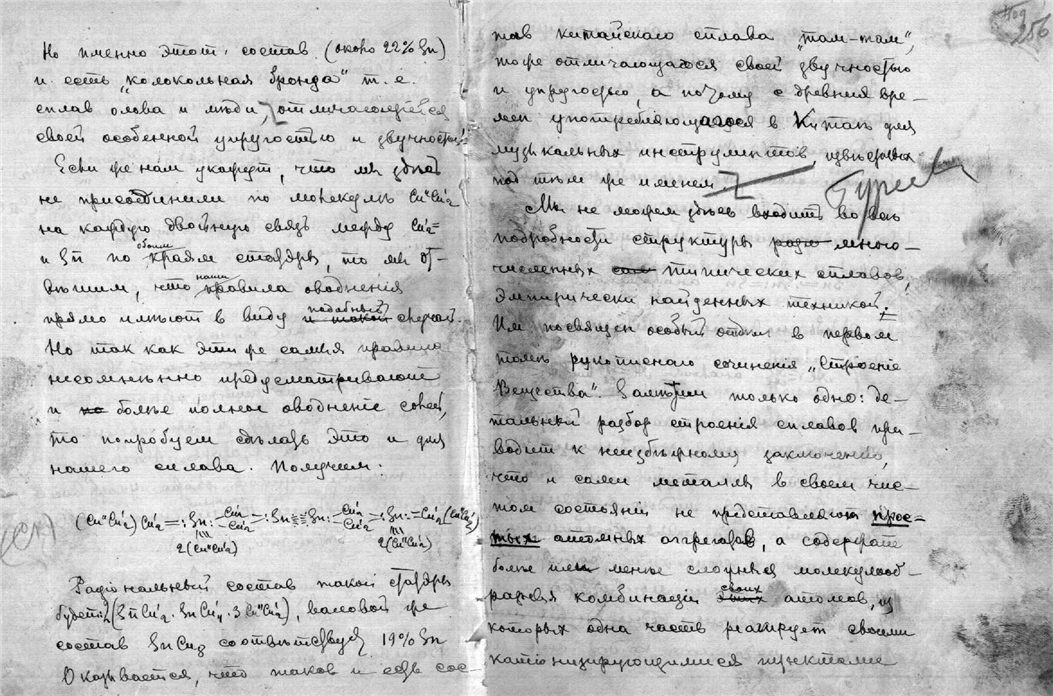 Но именно этот состав (около 22% Sn)
и есть „колокольная бронза" т. е.
сплав олова и мѣди, отличающейся
своей особенной упругостью и звучностью.
Если же нам укажут, что мы здѣсь
не присоединили по молекулѣ Cu"Cu'₂
на каждую двойную связь между Cu'₂=
и Sn по обоим краям стэдры, то мы от-
вѣтим, что наши правила оводненія
прямо имѣют в виду и такой подобный случай.
Но так как эти же самыя правила
несомнѣнно предусматривают
и но болѣе полное оводненіе солей,
то попробуем сдѣлать это и для
нашего сплава. Получим:
(Cu"Cu'₂) Cu'₂=:Sn: Cu'₂ Cu'₂ :Sn Sn: Cu'₂ Cu'₂ :Sn:=Cu'₂(Cu"Cu'₂)
2(Cu"Cu'₂) 2(Cu"Cu'₂)
Раціональный состав такой стэдры
будет (SnCu'₂. SnCu'₄. 3Cu"Cu'₂), валовой же
состав соотвѣтствует 19% Sn
Оказывается, что таков и есть сос-
тав китайскаго сплава „там-там",
тоже отличающагося своей звучностью
и упругостью, а потому с древних вре-
мен употребляющагося в Китаѣ для
музыкальных инструментов, извѣстных
под тѣм же именем.
Мы не можем здѣсь входить во всѣ
подробности структуры много-
численных типических сплавов,
эмпирически найденных техникой.
Им посвящен особый отдѣл в первом
томѣ рукописнаго сочиненія „Строеніе
Вещества". Замѣтим только одно: де-
тальный разбор строенія сплавов при-
водит к неизбѣжному заключенію,
что и сами металлы в своем чис-
том состояніи не представляют прос-
тых атомных аггрегатов, а содержат
болѣе или менѣе сложныя молекулооб-
разныя комбинаціи своих атомов, из
которых одна часть реагирует своими
катіонизирующимися пунктами